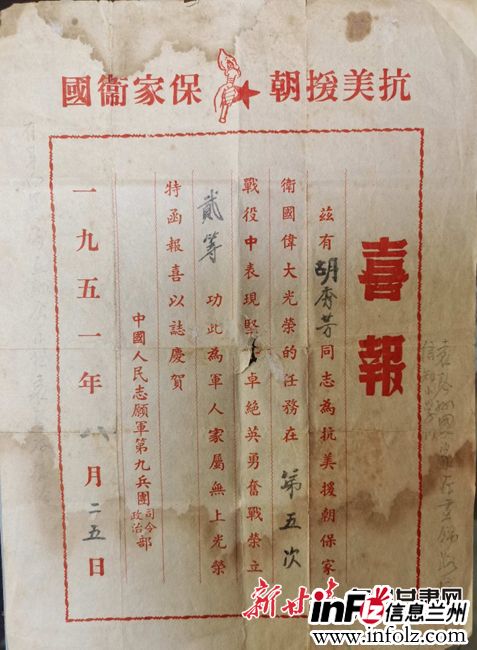 抗美援朝 保家衛國
喜報
茲有胡秀芳同志為抗美援朝保家
衛國偉大光榮的任務在第五次
戰役中表現堅 卓絕英勇奮戰榮立
貳等功此為軍人家屬無上光榮
特函報喜以誌慶賀
中國人民志願軍第九兵團司令政治部
一九五一年八月二五日
新甘肃
甘肃网
信息兰州
www.infolz.com